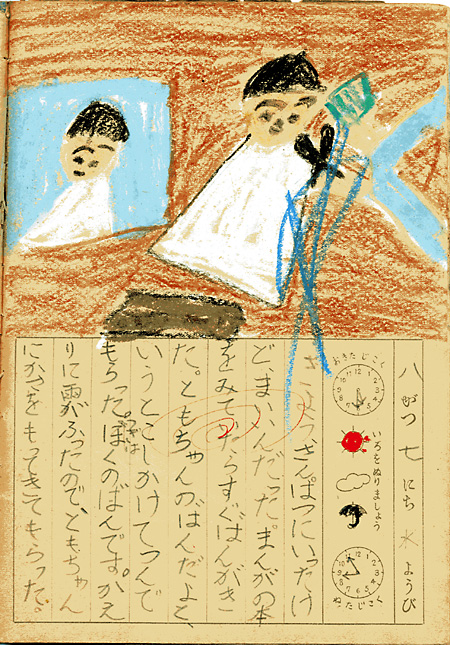 八がつ七にち水ようび
おきたじこく
いろをぬりましょう
ねたじこく
ざんぱつにいったけ
ど、まんいんだった。まんがの本
をみてゐたらすぐばんがき
た。ともちゃんのばんだよと、
いうとこしかけてつんで
もらった。つぎはぼくのばんです。かえ
りに雨がふったので、ともちゃん
にかさをもってきてもらった。